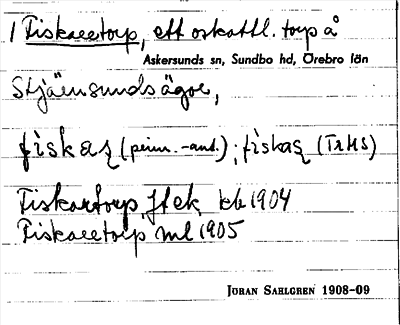 1 Fiskaretorp, ett oskattl. torp å
Askersunds sn, Sundbo hd, Örebro län
Stjärnsunds ägor,
fiskaʒ (prim.-and.); fiskaʒ (TrHS)
Fiskartorp Jfek kb 1904
Fiskaretorp ml 1905
JÖRAN SAHLGREN 1908-09